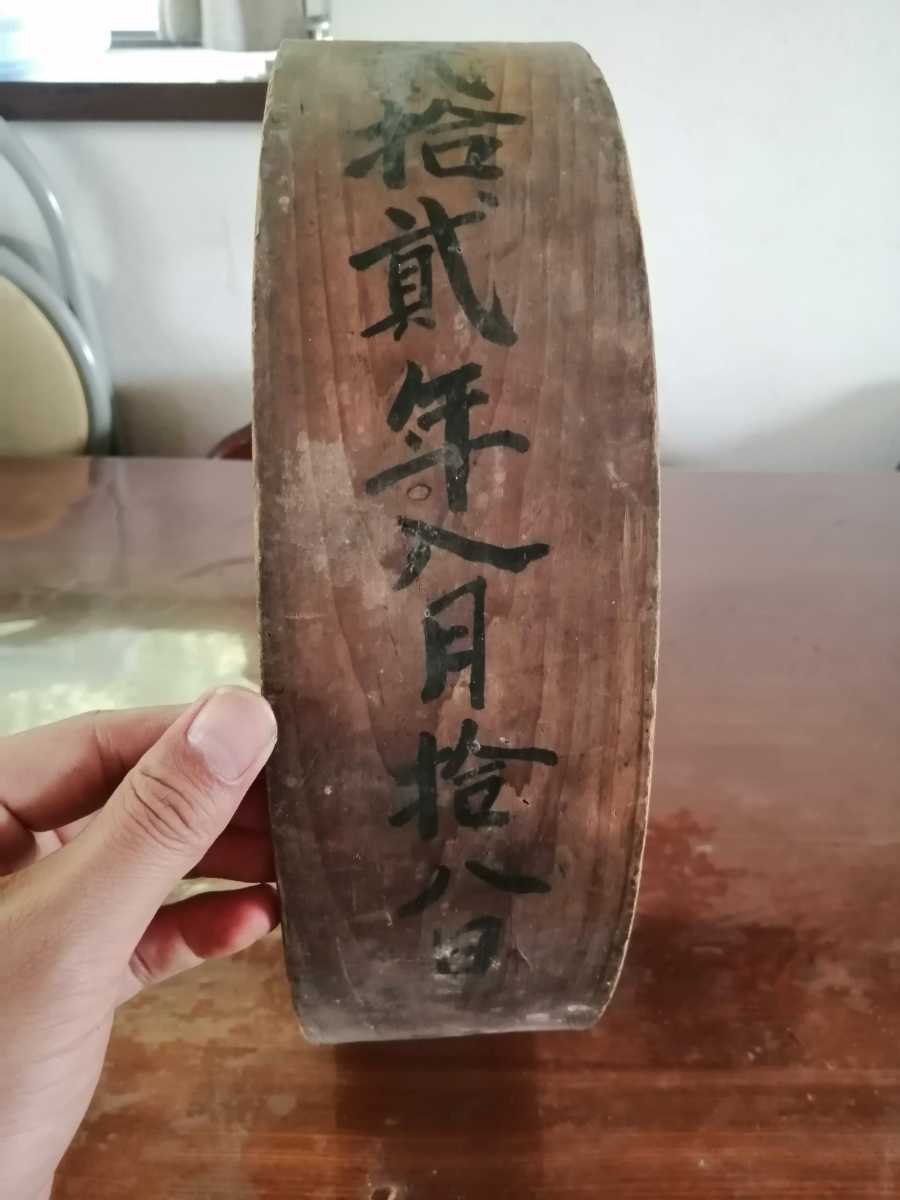 拾貳年八月拾八日